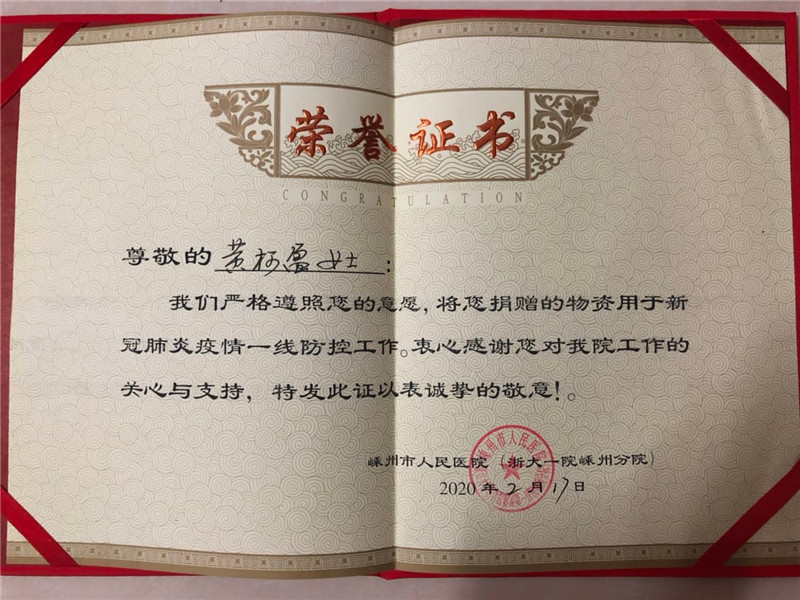 荣誉证书
CONGRATULATION
尊敬的 黄杨盈女士：
我们严格遵照您的意愿，将您捐赠的物资用于新
冠肺炎疫情一线防控工作。衷心感谢您对我院工作的
关心与支持，特发此证以表诚挚的敬意！。
嵊州市人民医院（浙大一院嵊州分院）
2020年2月17日